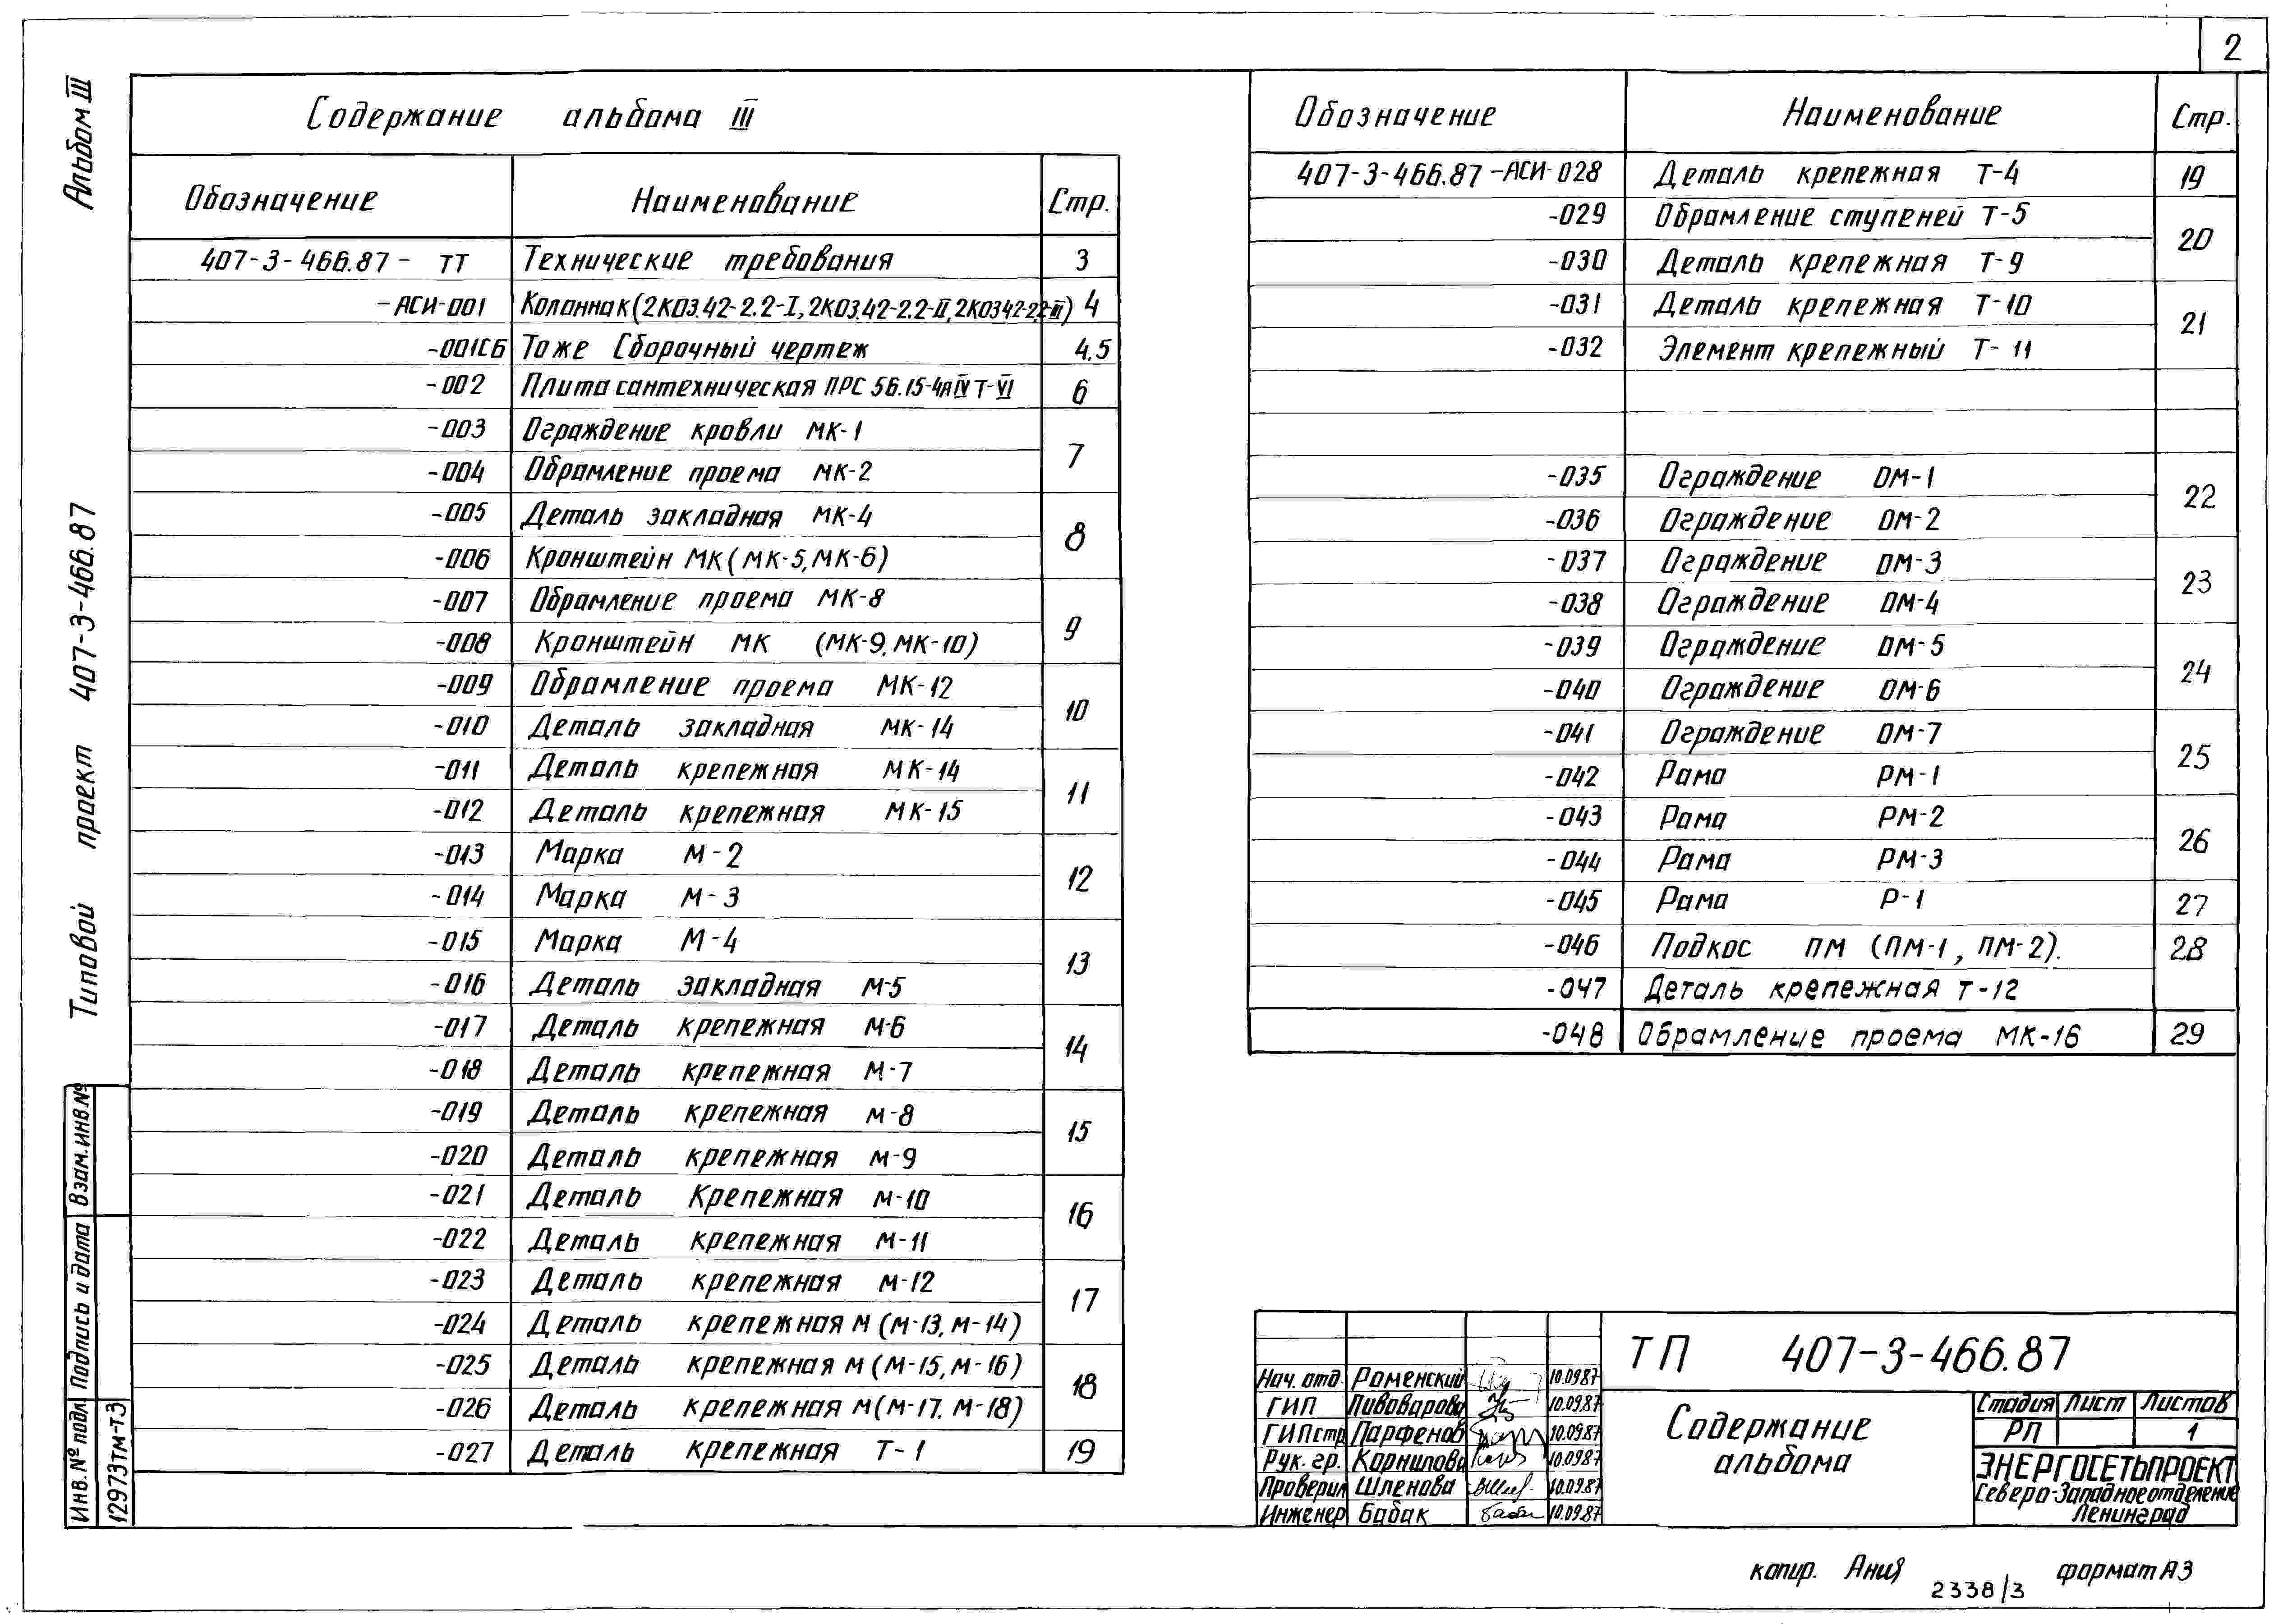 2
Альбом III
Типовой проект 407-3-466.87
Содержание альбома III
Обозначение Наименование Стр.
407-3-466.87- ТТ Технические требования 3
-АСИ-001 Колонна К (2К03.42-2.2-I, 2К03.42-2.2-II, 2К0342-2.2-III) 4
-001СБ Тоже Сборочный чертеж 4.5
-002 Плита сантехническая ПРС 56.15-4АIVТ-VI 6
-003 Ограждение кровли МК-1 7
-004 Обрамление проема МК-2
-005 Деталь закладная МК-4 8
-006 Кронштейн МК (МК-5, МК-6)
-007 Обрамление проема МК-8 9
-008 Кронштейн МК (МК-9, МК-10)
-009 Обрамление проема МК-12 10
-010 Деталь закладная МК-14
-011 Деталь крепежная МК-14 11
-012 Деталь крепежная МК-15
-013 Марка М-2 12
-014 Марка М-3
-015 Марка М-4 13
-016 Деталь закладная М-5
-017 Деталь крепежная М-6 14
-018 Деталь крепежная М-7
-019 Деталь крепежная М-8 15
-020 Деталь крепежная М-9
-021 Деталь Крепежная М-10 16
-022 Деталь крепежная М-11
-023 Деталь крепежная М-12 17
-024 Деталь крепежная М (М-13, М-14)
-025 Деталь крепежная М (М-15, М-16) 18
-026 Деталь крепежная М (М-17. М-18)
-027 Деталь крепежная Т-1 19
Обозначение Наименование Стр.
407-3-466.87-АСИ-028 Деталь крепежная Т-4 19
-029 Обрамление ступеней Т-5 20
-030 Деталь крепежная Т-9
-031 Деталь крепежная Т-10 21
-032 Элемент крепежный Т-11
-035 Ограждение ОМ-1 22
-036 Ограждение ОМ-2
-037 Ограждение ОМ-3 23
-038 Ограждение ОМ-4
-039 Ограждение ОМ-5 24
-040 Ограждение ОМ-6
-041 Ограждение ОМ-7 25
-042 Рама РМ-1
-043 Рама РМ-2 26
-044 Рама РМ-3
-045 Рама Р-1 27
-046 Подкос ПМ (ПМ-1, ПМ-2). 28
-047 Деталь крепежная Т-12
-048 Обрамление проема МК-16 29
Взам. инв №
Подпись и дата
Инв. № подл
12973тм-т3
Нач. отд. Роменский 10.09.87
ГИП Пивоварова 10.09.87
ГИП стр Парфенов 10.09.87
Рук. гр. Корнилова 10.09.87
Проверил Шленова 10.09.87
Инженер Бабак 10.09.87
ТП 407-3-466.87
Содержание
альбома
Стадия Лист Листов
РП 1
ЭНЕРГОСЕТЬПРОЕКТ
Северо-Западное отделение
Ленинград
копир. Ания
2338/3
формат А3